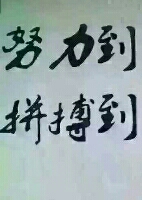 努力到
拼搏到